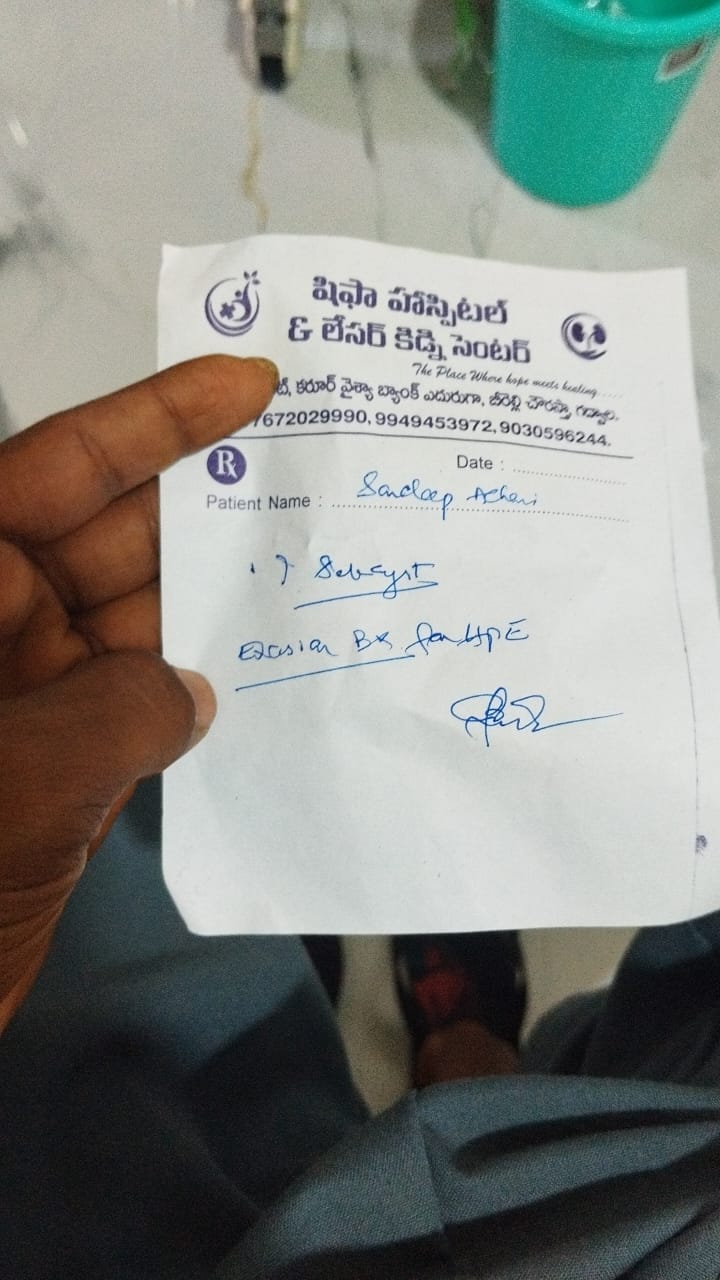 షిఫా హాస్పిటల్
& లేసర్ కిడ్ని సెంటర్
The Place Where hope meets healing.....
కరూర్ వైశ్యా బ్యాంక్ ఎదురుగా, బీరెల్లి చౌరస్తా గద్వాల.
7672029990, 9949453972, 9030596244.
Rx
Date :
Patient Name : Sandeep
1) Sebcyst
Excision Bx for HPE